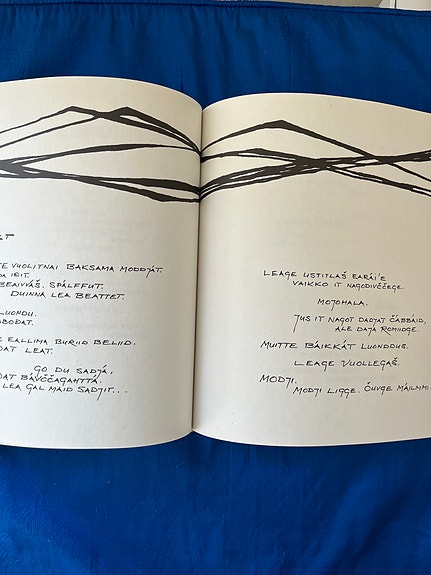 LT
TE VUOLITNAI BAKSAMA MODDJÁT.
DA IĐIT.
BEAIVVÁŠ. SPÁLFFUT.
DUINNA LEA BEATTET.
LUONDU.
BOĐAT.
E EALLIMA BURIID BELIID.
DAT LEAT.
GO DU SADJÁ.
DAT BÁVČČAGAHTTÁ.
LEA GAL MAID SADJIT...
LEAGE USTITLAŠ EARÁI'E
VAIKKO IT NAGODIVČČEGE.
MOJOHALA.
JUS IT NAGOT DADJAT ČÁBBÁID,
ALE DAJA ROMIIDGE.
MUITTE BÁIKKÁT LUONDDUS.
LEAGE VUOLLEGAŠ.
MODJI.
MODJI LIGGE. ČUVGE MÁILMMI.